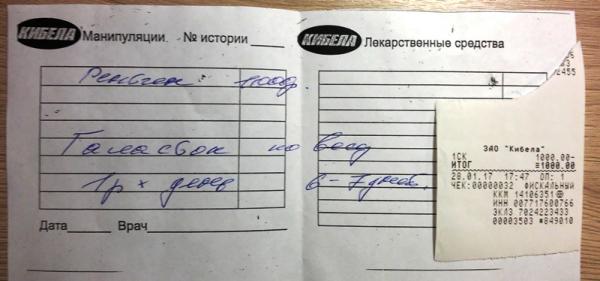 КИБЕЛА Манипуляции. № истории
КИБЕЛА Лекарственные средства
Рентген 1000р.
1р × день 6-7 дней.
Дата Врач
2455
ЗАО "Кибела"
1СК 1000.00-
ИТОГ ≡1000.00
28.01.17 17:47 ОП: 1
ЧЕК:00000032 ФИСКАЛЬНЫЙ
ККМ 14106351
ИНН 007717600766
ЭКЛЗ 7024223433
00003503 *849010